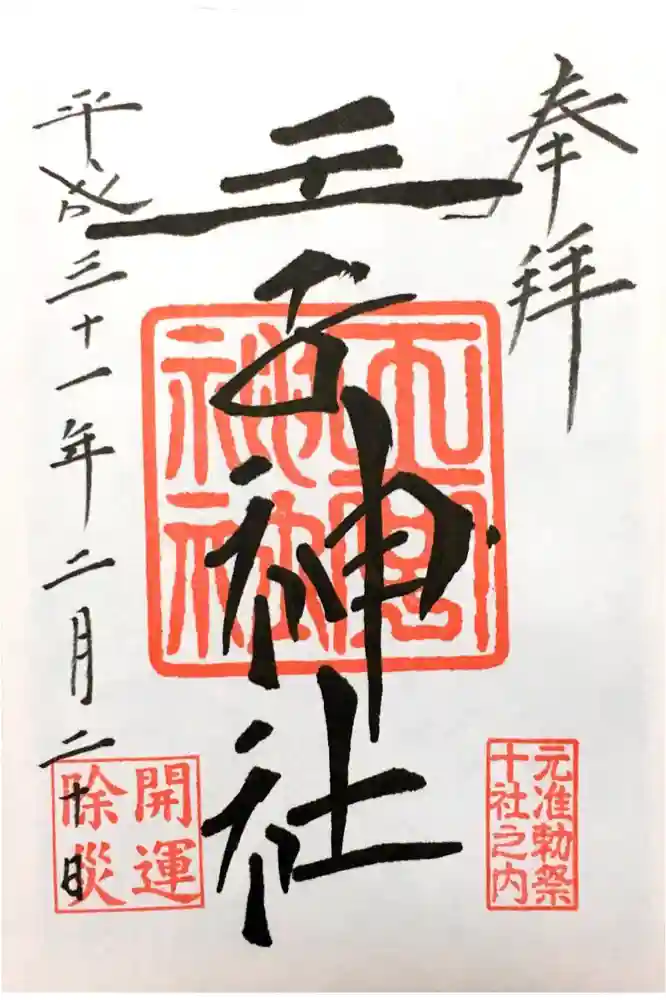 奉拝
王子神社
平成三十一年二月二十日
元准勅祭
十社之内
開運
除災